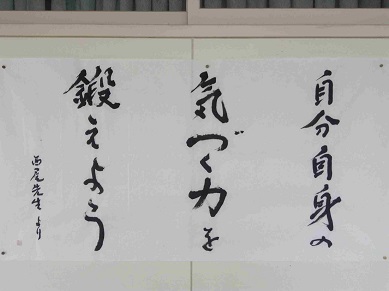 自分自身の
気づく力を
鍛えよう
西尾先生より